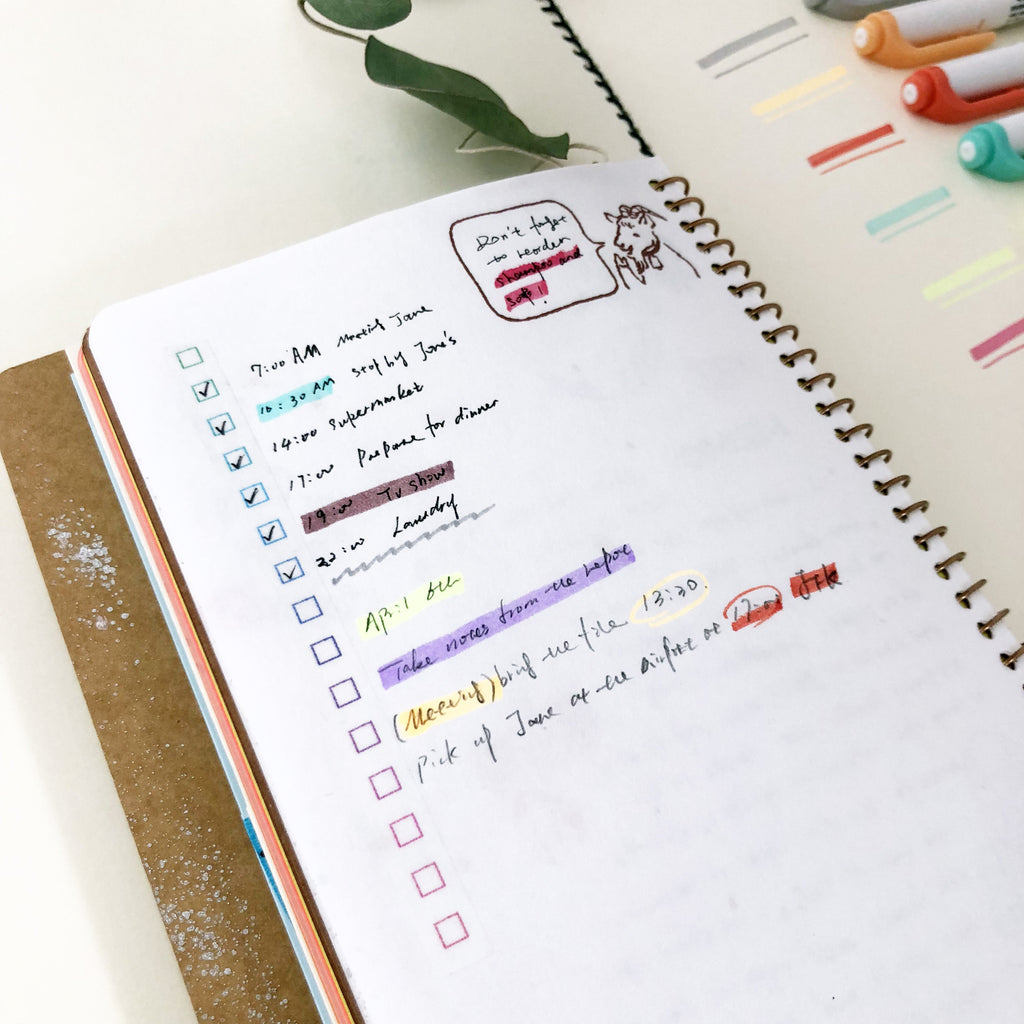 Don't forget
to reorder
shampoo and
soap!
7:00 AM Meeting Jane
10:30 AM stop by Jane's
14:00 Supermarket
17:00 Prepare for dinner
19:00 TV show
22:00 Laundry
April 6th
Take notes from the
(Meeting) bring the file 13:30.
Pick up Jane at the airport at 17:00